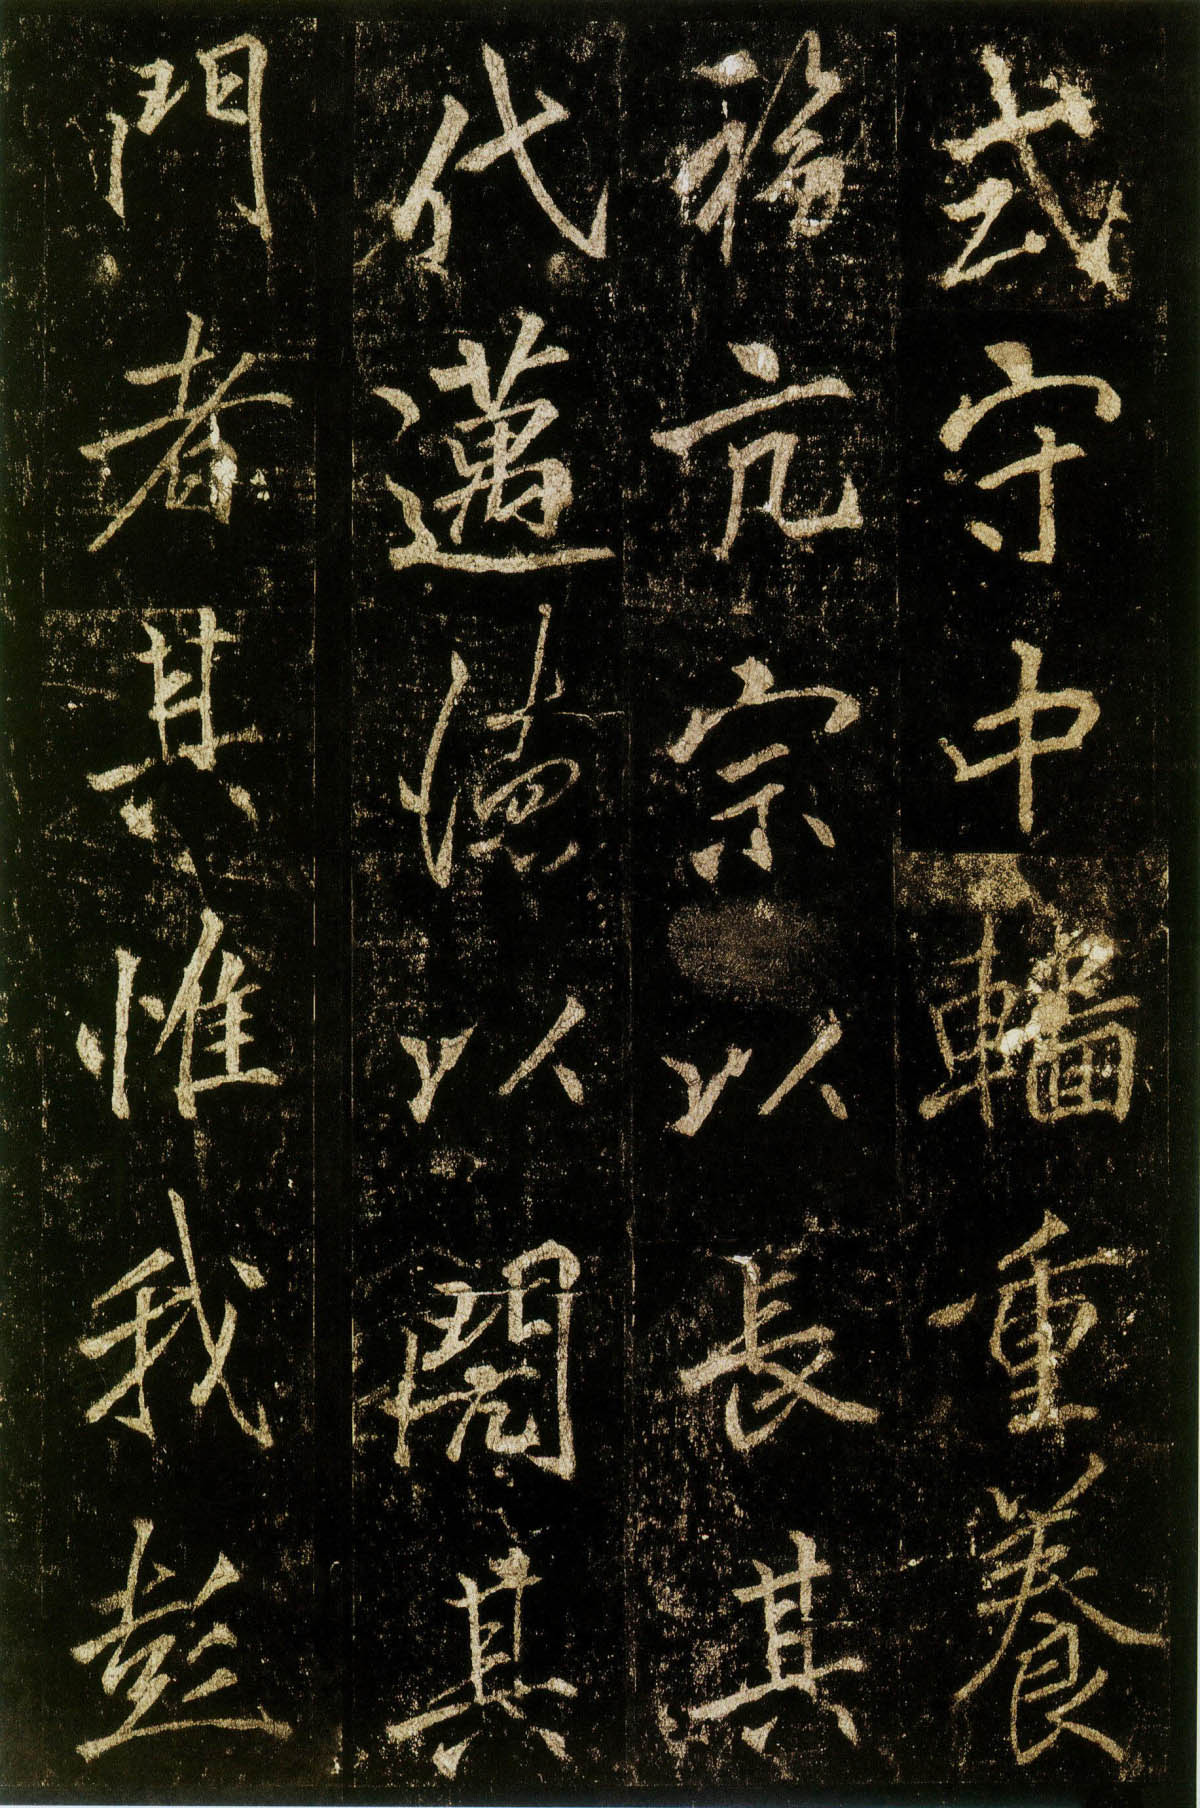 式守中輜重養
福亢宗以長其
代邁德以闊其
門者其惟我彭